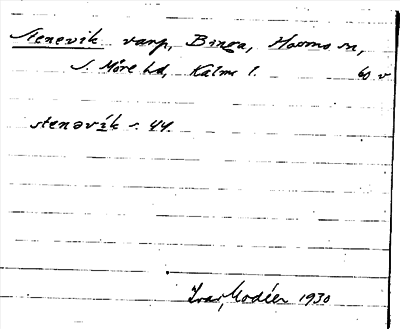 Stenevik varp, Binga, Hossmo sn,
S. Möre hd, Kalm. l. 60 v
stenəvík s. 44.
Ivar Modéer 1930